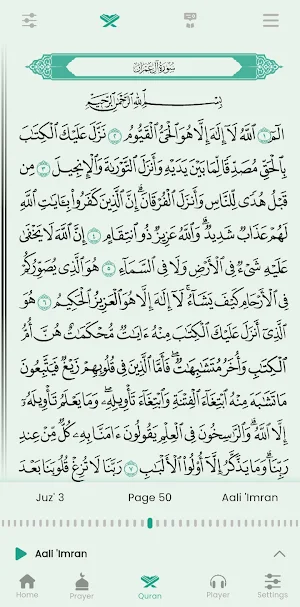 سُورَةُ آلِ عِمْرَان
بِسْمِ ٱللَّهِ ٱلرَّحْمَٰنِ ٱلرَّحِيمِ
الٓمٓ ١ ٱللَّهُ لَآ إِلَٰهَ إِلَّا هُوَ ٱلْحَىُّ ٱلْقَيُّومُ ٢ نَزَّلَ عَلَيْكَ ٱلْكِتَٰبَ
بِٱلْحَقِّ مُصَدِّقًا لِّمَا بَيْنَ يَدَيْهِ وَأَنزَلَ ٱلتَّوْرَىٰةَ وَٱلْإِنجِيلَ ٣ مِن
قَبْلُ هُدًى لِّلنَّاسِ وَأَنزَلَ ٱلْفُرْقَانَ ۗ إِنَّ ٱلَّذِينَ كَفَرُوا۟ بِـَٔايَٰتِ ٱللَّهِ
لَهُمْ عَذَابٌ شَدِيدٌ ۗ وَٱللَّهُ عَزِيزٌ ذُو ٱنتِقَامٍ ٤ إِنَّ ٱللَّهَ لَا يَخْفَىٰ
عَلَيْهِ شَىْءٌ فِى ٱلْأَرْضِ وَلَا فِى ٱلسَّمَآءِ ٥ هُوَ ٱلَّذِى يُصَوِّرُكُمْ
فِى ٱلْأَرْحَامِ كَيْفَ يَشَآءُ ۚ لَآ إِلَٰهَ إِلَّا هُوَ ٱلْعَزِيزُ ٱلْحَكِيمُ ٦ هُوَ
ٱلَّذِىٓ أَنزَلَ عَلَيْكَ ٱلْكِتَٰبَ مِنْهُ ءَايَٰتٌ مُّحْكَمَٰتٌ هُنَّ أُمُّ
ٱلْكِتَٰبِ وَأُخَرُ مُتَشَٰبِهَٰتٌ ۖ فَأَمَّا ٱلَّذِينَ فِى قُلُوبِهِمْ زَيْغٌ فَيَتَّبِعُونَ
مَا تَشَٰبَهَ مِنْهُ ٱبْتِغَآءَ ٱلْفِتْنَةِ وَٱبْتِغَآءَ تَأْوِيلِهِۦ ۗ وَمَا يَعْلَمُ تَأْوِيلَهُۥٓ
إِلَّا ٱللَّهُ ۗ وَٱلرَّٰسِخُونَ فِى ٱلْعِلْمِ يَقُولُونَ ءَامَنَّا بِهِۦ كُلٌّ مِّنْ عِندِ
رَبِّنَا ۗ وَمَا يَذَّكَّرُ إِلَّآ أُو۟لُوا۟ ٱلْأَلْبَٰبِ ٧ رَبَّنَا لَا تُزِغْ قُلُوبَنَا بَعْدَ
Juz' 3 Page 50 Aali 'Imran
Aali 'Imran
Home Prayer Quran Player Settings